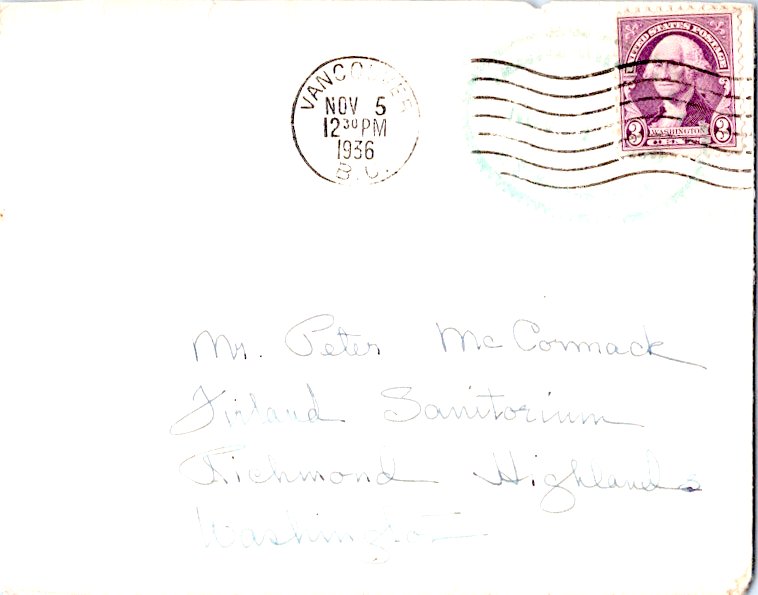 VANCOUVER
NOV 5
12 30 PM
1936
B.C.
UNITED STATES POSTAGE
3 WASHINGTON 3
CENTS
Mr. Peter McCormack
Firland Sanitorium
Richmond Highlands
Washington